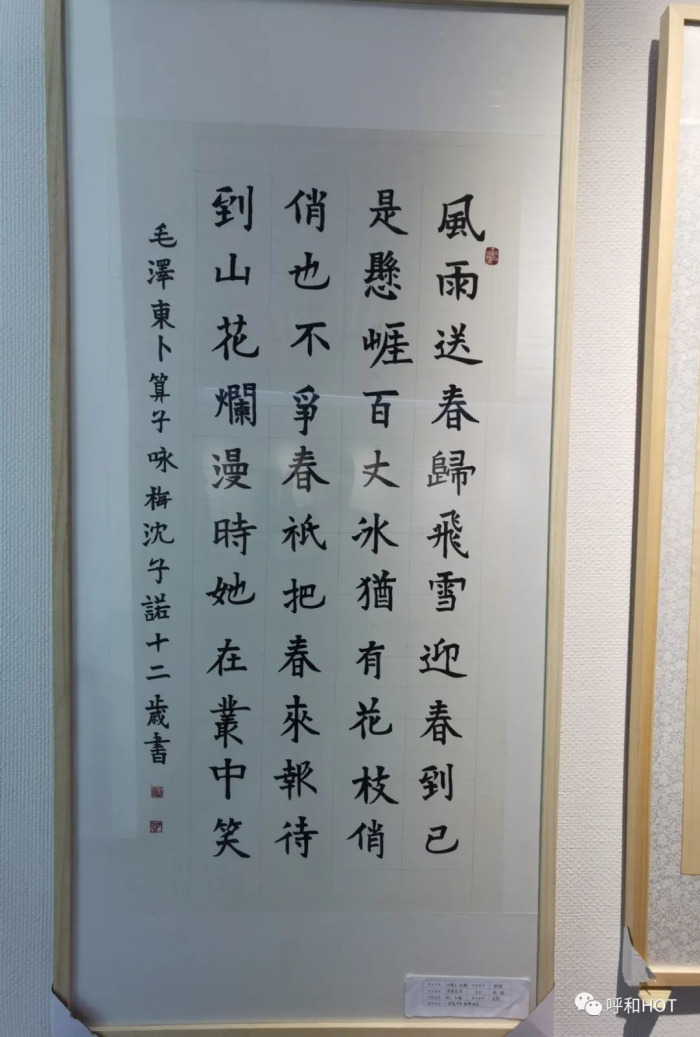 風雨送春歸飛雪迎春到已
是懸崕百丈冰猶有花枝俏
俏也不爭春祇把春來報待
到山花爛漫時她在叢中笑
毛澤東卜算子咏梅沈子諾十二歲書
呼和HOT